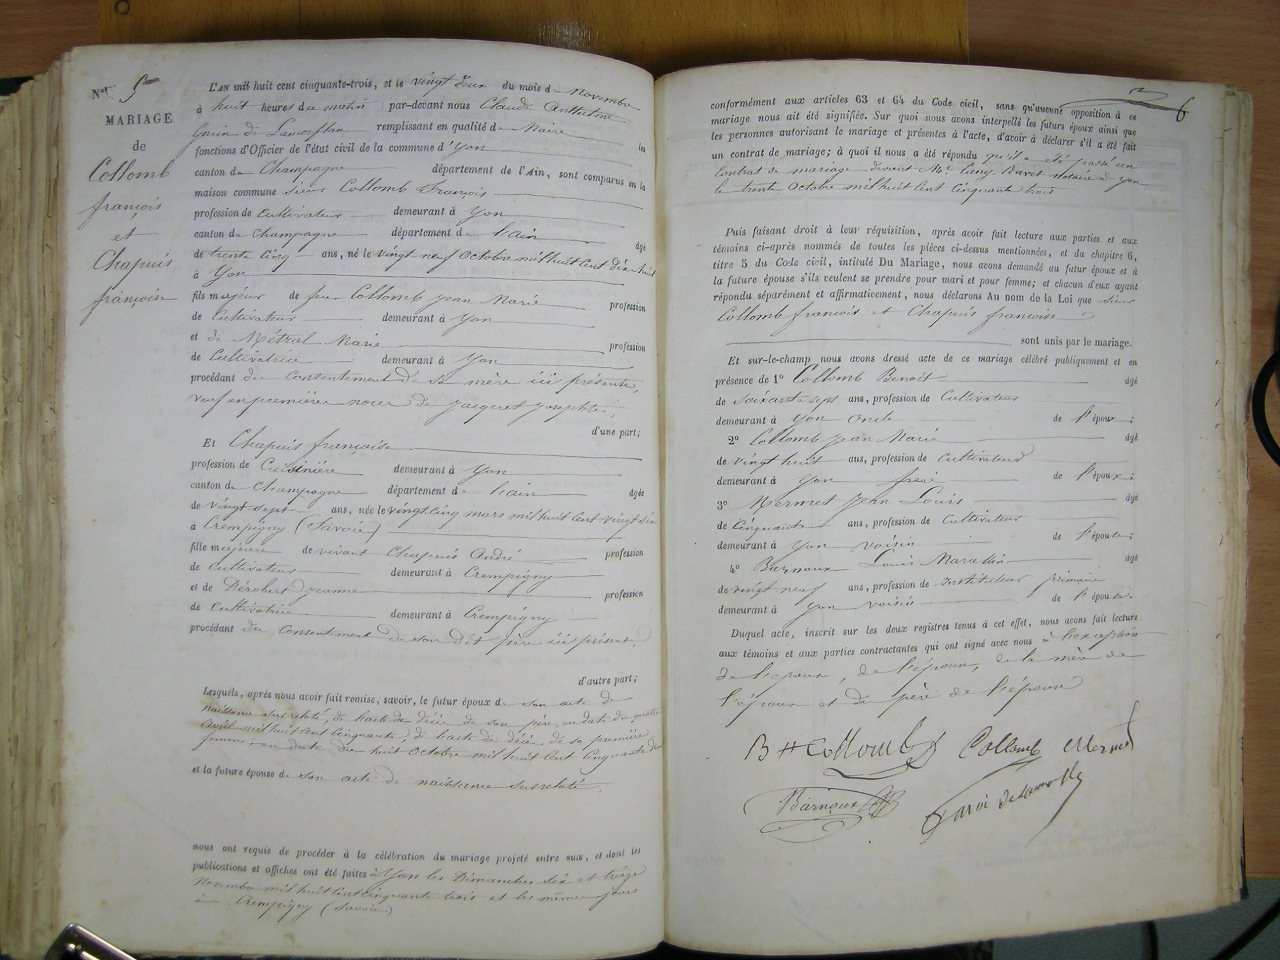 N° 5
MARIAGE
de
Collomb
françois
et
Chapuis
françoise
L'AN mil huit cent cinquante-trois, et le vingt deux du mois de Novembre
à huit heures du matin, par-devant nous Claude Anthelme
remplissant en qualité de Maire les
fonctions d'Officier de l'état civil de la commune d'Yon
canton de Champagne département de l'Ain, sont comparus en la
maison commune sieur Collomb François
profession de Cultivateur demeurant à Yon
canton de Champagne département de l'ain âgé
de trente cinq ans, né le vingt neuf Octobre mil huit cent dix huit
à Yon
fils majeur de feu Collomb jean Marie profession
de Cultivateur demeurant à Yon
et de Métral Marie profession
de Cultivatrice demeurant à Yon
procédant du Consentement de sa mère ici présente,
veuf en première noces de jacquet josephte,
d'une part;
Et Chapuis françoise
profession de Cuisinière demeurant à Yon
canton de Champagne département de l'ain âgée
de vingt sept ans, née le vingt cinq mars mil huit cent vingt six
à Crempigny (Savoie)
fille majeure de vivant Chapuis André profession
de Cultivateur demeurant à Crempigny
et de Dérobert jeanne profession
de Cultivatrice demeurant à Crempigny
procédant du Consentement de son dit père ici présent
d'autre part;
Lesquels, après nous avoir fait remise, savoir, le futur époux de son acte de
naissance susrelaté, de l'acte de décès de son père, en date du quatre
avril mil huit cent cinquante, de l'acte de décès de sa première
femme, en date du huit Octobre mil huit cent cinquante deux
et la future épouse de son acte de naissance susrelaté.
nous ont requis de procéder à la célébration du mariage projeté entre eux, et dont les
publications et affiches ont été faites à Yon les Dimanches six et treize
Novembre mil huit cent cinquante trois et les mêmes jours
à Crempigny (Savoie)
6
conformément aux articles 63 et 64 du Code civil, sans qu'aucune opposition à ce
mariage nous ait été signifiée. Sur quoi nous avons interpellé les futurs époux ainsi que
les personnes autorisant le mariage et présentes à l'acte, d'avoir à déclarer s'il a été fait
un contrat de mariage; à quoi il nous a été répondu qu'il a été passé un
Contrat de mariage devant Me Bavet notaire à Yon
le trente Octobre mil huit cent cinquante trois
Puis faisant droit à leur réquisition, après avoir fait lecture aux parties et aux
témoins ci-après nommés de toutes les pièces ci-dessus mentionnées, et du chapitre 6,
titre 5 du Code civil, intitulé Du Mariage, nous avons demandé au futur époux et à
la future épouse s'ils veulent se prendre pour mari et pour femme; et chacun d'eux ayant
répondu séparément et affirmativement, nous déclarons Au nom de la Loi que sieur
Collomb francois et Chapuis francoise
sont unis par le mariage.
Et sur-le-champ nous avons dressé acte de ce mariage célébré publiquement et en
présence de 1° Collomb Benoit âgé
de soixante sept ans, profession de Cultivateur
demeurant à Yon oncle de l'époux;
2° Collomb jean Marie âgé
de vingt huit ans, profession de Cultivateur
demeurant à Yon frère de l'époux;
3° Mermet jean Louis âgé
de Cinquante ans, profession de Cultivateur
demeurant à Yon voisin de l'époux;
4° Barnoux Louis âgé
de vingt neuf ans, profession de Instituteur primaire
demeurant à Yon voisin de l'époux.
Duquel acte, inscrit sur les deux registres tenus à cet effet, nous avons fait lecture
aux témoins et aux parties contractantes qui ont signé avec nous à l'exception
de l'époux, de l'épouse, de la mère de
l'époux et du père de l'épouse
B H Collomb Collomb Mermet
Barnoux